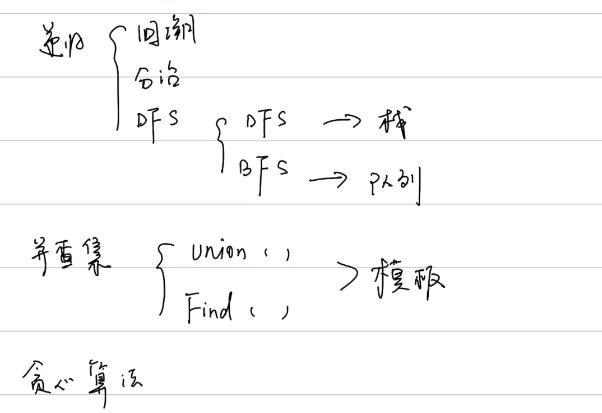 递归 { 回溯
分治
DFS { DFS → 栈
BFS → 队列
并查集 { union ( )
Find ( ) > 模板
贪心算法